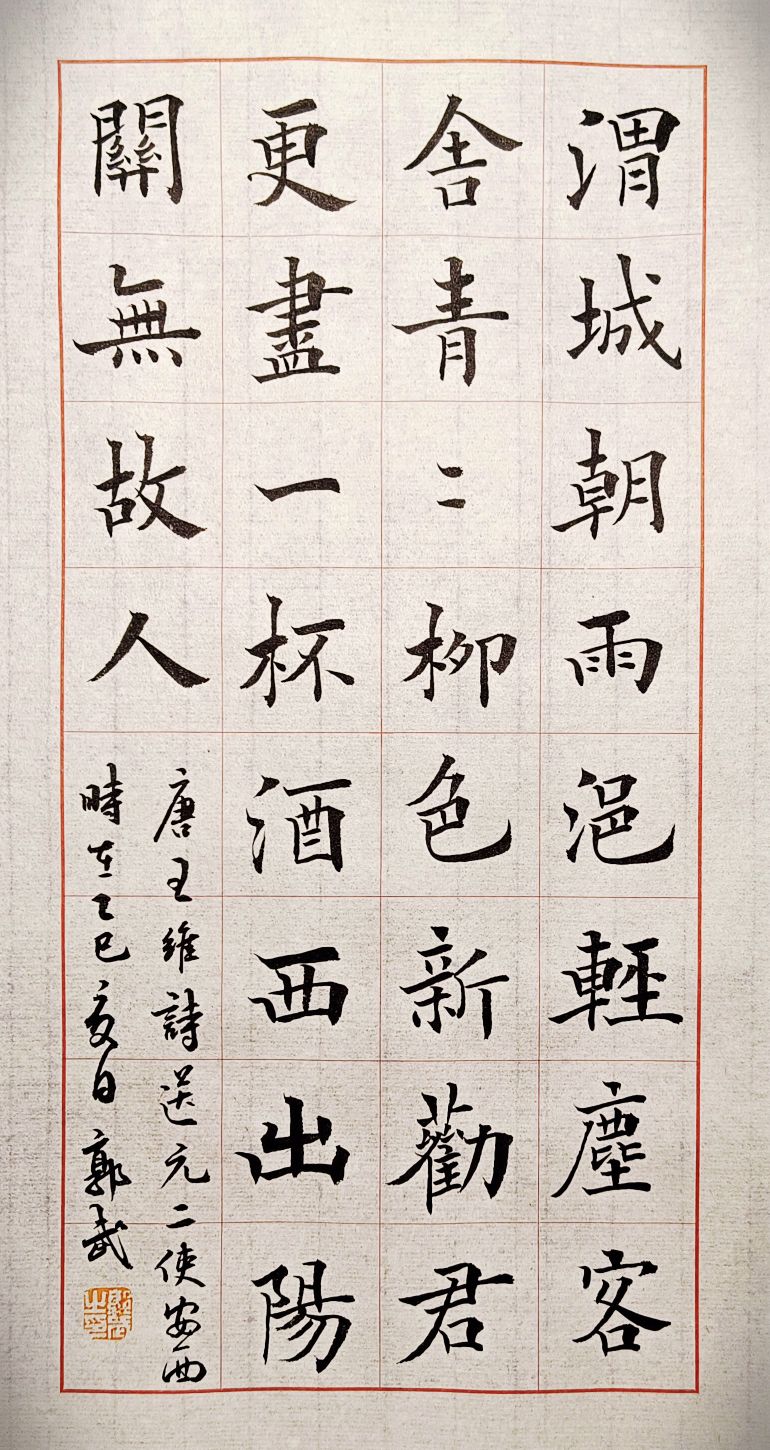 渭城朝雨浥輕塵客
舍青〻柳色新勸君
更盡一杯酒西出陽
關無故人
唐王維詩送元二使安西
時在乙巳夏日郭武